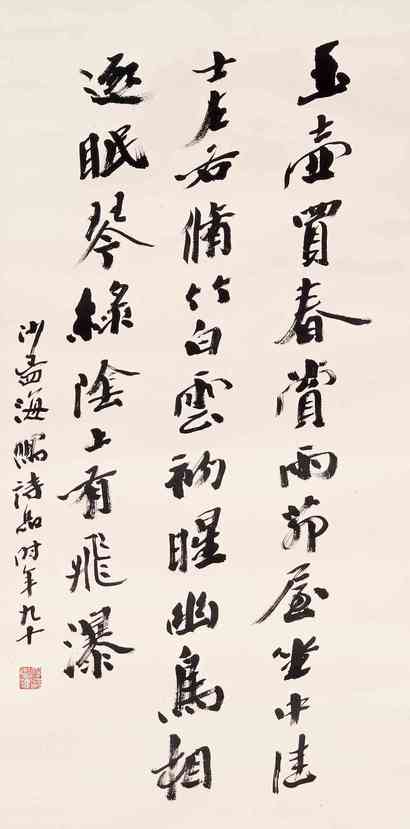 玉壺買春賞雨茆屋坐中佳
士左右脩竹白雲初晴幽鳥相
逐眠琴綠陰上有飛瀑
沙孟海詩品时年九十